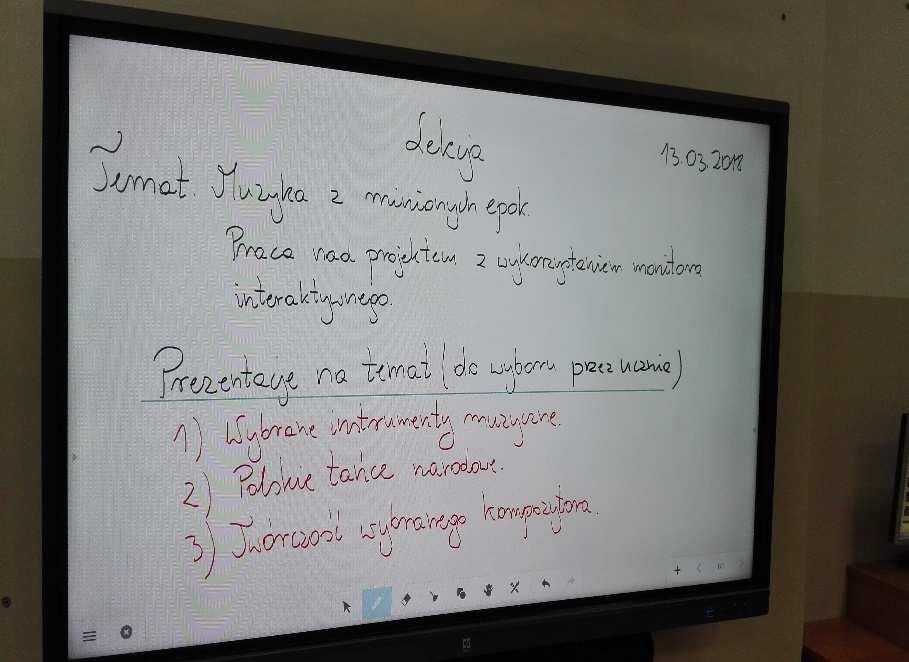 Lekcja 13.03.2018
Temat. Muzyka z minionych epok.
Praca nad projektem z wykorzystaniem monitora
interaktywnego.
Prezentacje na temat (do wyboru przez ucznia)
1) Wybrane instrumenty muzyczne.
2) Polskie tańce narodowe.
3) Twórczość wybranego kompozytora.